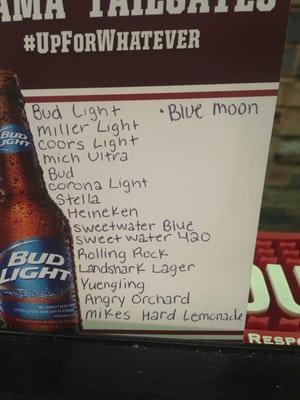 AMA TAILGATES
#UPFORWHATEVER
Bud Light
• Blue Moon
miller Light
Coors Light
mich Ultra
Bud
corona Light
Stella
Heineken
sweetwater Blue
sweet water 420
Rolling Rock
Landshark Lager
Yuengling
Angry Orchard
mikes Hard Lemonade
BUD
LIGHT
BUD
LIGHT
RESP